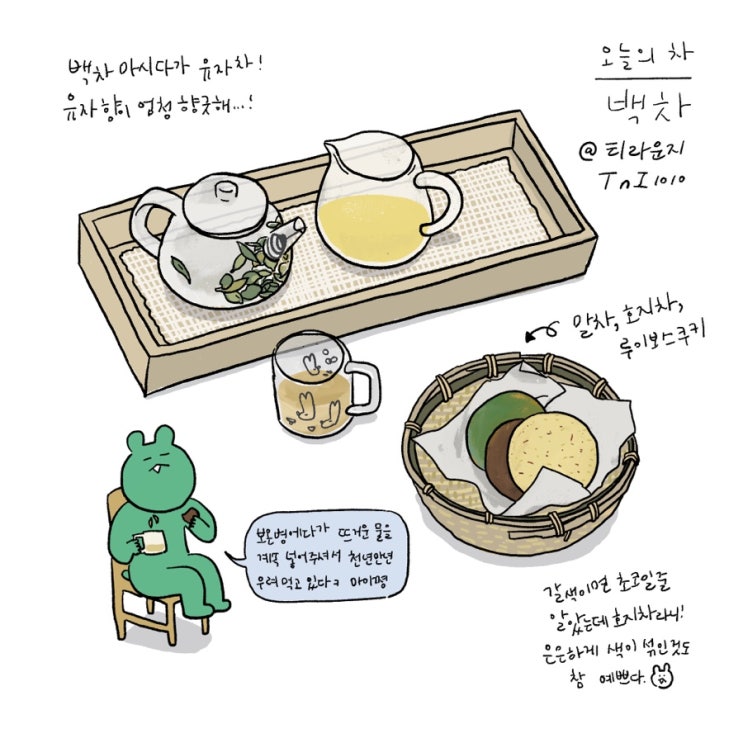 백차 마시다가 유자차!
유자향이 엄청 향긋해...!
오늘의 차
백차
@ 티라운지
TnI1010
말차, 호지차,
루이보스쿠키
보온병에다가 뜨거운 물을
계속 넣어주셔서 천년만년
우려 먹고 있다ㅋ 마이쪙
갈색이면 초코일줄
알았는데 호지차라니!
은은하게 색이 섞인것도
참 예쁘다.